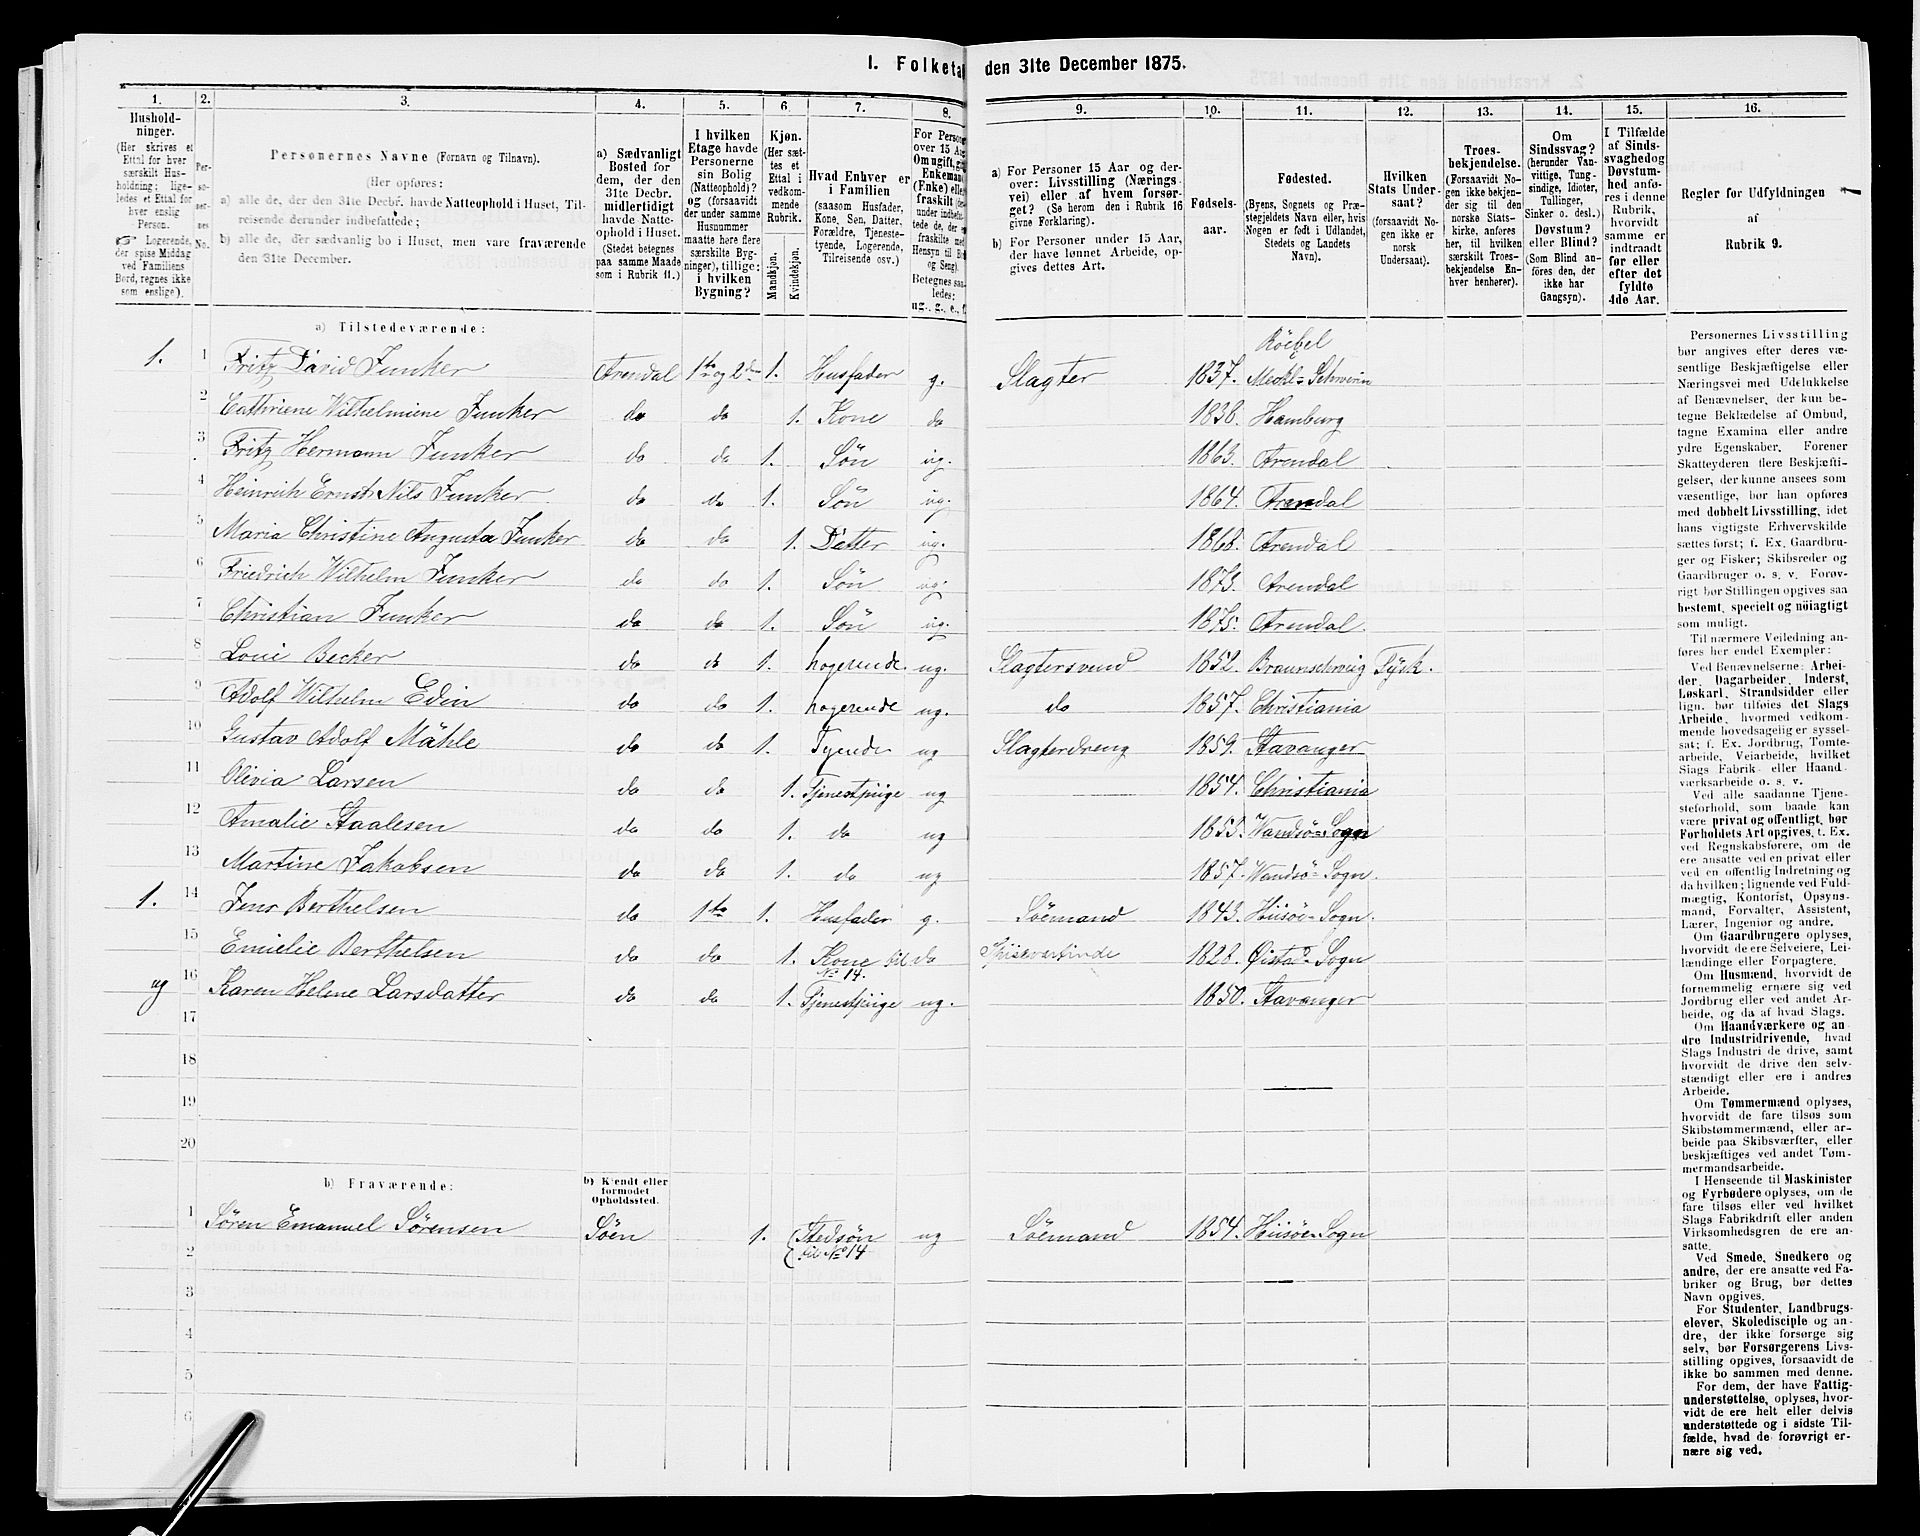 I. Folketal den 31te December 1875.
1. 2. 3. 4. 5. 6. 7. 8. 9. 10. 11. 12. 13. 14. 15. 16.
Husholdninger.
(Her skrives et
Ettal for hver
særskilt Husholdning;
ligeledes et Ettal for
hver enslig
Person.
☞ Logerende,
der spise Middag
ved Familiens
Bord, regnes ikke
som enslige).
Personernes No.
Personernes Navne (Fornavn og Tilnavn).
(Her opføres:
a) alle de, der den 31te Decbr. havde Natteophold i Huset, Tilreisende derunder indbefattede;
b) alle de, der sædvanlig bo i Huset, men vare fraværende
den 31te December.
a) Sædvanligt
Bosted for
dem, der den
31te Decbr.
midlertidigt
havde Natteophold i Huset.
(Stedet betegnes
paa samme Maade
som i Rubrik 11.)
I hvilken
Etage havde
Personerne
sin Bolig
(Natteophold)?
og (forsaavidt
der under samme
Husnummer
maatte høre flere
særskilte Bygninger), tillige:
i hvilken
Bygning?
Kjøn.
(Her sættes et
Ettal i
vedkommende
Rubrik.
Mandkjøn.
Kvindekjøn.
Hvad Enhver er
i Familien
(saasom Husfader,
Kone, Søn, Datter,
Forældre, Tjenestetyende, Logerende,
Tilreisende osv.)
a) For Personer 15 Aar og derover: Livsstilling (Næringsvei) eller af hvem forsørget? (Se herom den i Rubrik 16
givne Forklaring).
b) For Personer under 15 Aar,
der have lønnet Arbeide, opgives dettes Art.
Fødselsaar.
Fødested.
(Byens, Sognets og Præstegjeldets Navn eller, hvis
Nogen er født i Udlandet,
Stedets og Landets
Navn).
Hvilken
Stats Undersaat?
(forsaavidt Nogen ikke er
norsk
Undersaat).
Troesbekjendelse.
(Forsaavidt Nogen ikke bekjender sig til den
norske Statskirke, anføres
her, til hvilken
særskilt Troesbekjendelse Enhver henhører).
Om
Sindssvag?
(herunder Vanvittige, Tungsindige, Idioter,
Tullinger,
Sinker o. desl.)
Døvstum?
eller Blind?
(Som Blind anføres den, der
ikke har
Gangsyn).
I Tilfælde
af Sindssvaghed og
Døvstumhed anføres i denne
Rubrik,
hvorvidt
samme er
indtraadt
før eller
efter det
fyldte
4de Aar.
Regler før Udfyldningen
af
Rubrik 9.
a) Tilstedeværende:
1. 1 Fritz David Junker Arendal 1te og 2den 1. Husfader g. Slagter 1837. Röebel Meckl-Schwerin
2 Cathriene Wilhelmiene Junker do do 1. Kone do 1838. Hamburg
3 Fritz Hermann Junker do do 1. Søn ug. 1863. Arendal
4 Heinrich Ernst Nils Junker do do 1. Søn ug. 1864. Arendal
5 Maria Christine Augusta Junker do do 1. Datter ug. 1868. Arendal
6 Friedrich Wilhelm Junker do do 1. Søn ug. 1873. Arendal
7 Christian Junker do do 1. Søn ug. 1875. Arendal.
8 Loui Becker do do 1. logerende. ug. Slagtersvend 1852. Braunschweig Tysk.
9 Adolf Wilhelm Edin do do 1. logerende ug. do 1857. Christiania
10 Gustav Adolf Mähle do do 1. Tyende ug Slagterdreng 1859. Stavanger
11 Olivia Larsen do do 1. Tjenestpige ug 1854. Christiania
12 Amalie Staalesen do do 1. do ug 1853. Wandsø-Sogn
13 Martine Jakobsen do do 1. do ug 1857. Wandsø-Sogn.
1. 14 Jens Berthelsen do 1te 1. Husfader g. Söemand 1843. Hiisøe-Sogn.
15 Emielie Berthelsen do do 1. Kone til No 14. do 1828. Øistad-Sogn
ug 16 Karen Helene Larsdatter do do 1. Tjenestpige ug. 1850. Stavanger
17
18
19
20
b) Fraværende:
b) Kjendt eller
formodet
Opholdssted.
1 Søren Emanuel Sörensen Söen 1. Stedsøn til No 14 ug Söemand 1854. Hiisøe-Sogn
2
3
4
5
6
Personernes Livsstilling
bør angives efter deres væsentlige Beskjæftigelse eller
Næringsvei med Udelukkelse
af Benævnelser, der kun betegne Beklædelse af Ombud,
tagne Examina eller andre
ydre Egenskaber. Forener
Skatteyderen flere Beskjæftigelser, der kunne ansees som
væsentlige, bør han opføres
med dobbelt Livsstilling, idet
hans vigtigste Erhvervskilde
sættes først; f. Ex. Gaardbruger og Fisker; Skibsreder og
Gaardbruger o. s. v. Forøvrigt bør Stillingen opgives saa
bestemt, specielt og nöiagtigt
som muligt.
Til nærmere Veiledning anføres her endel Exempler:
Ved Benævnelserne: Arbeider, Dagarbeider, Inderst,
Løskarl, Strandsidder eller
lign. bør tilføies det Slags
Arbeide, hvormed vedkommende hovedsagelig er sysselsat; f. Ex. Jordbrug, Tomtearbeide, Veiarbeide, hvilket
Slags Fabrik- eller Haandværksarbeide o. s. v.
Ved alle saadanne Tjenesteforhold, som baade kan
være privat og offentligt, bør
Forholdets Art opgives, t. Ex.
ved Regnskabsførere, om de
ere ansatte ved en privat eller
ved en offentlig Indretning og
da hvilken; lignende ved Fuldmægtig, Kontorist, Opsynsmand, Forvalter, Assistent,
Lærer, Ingeniør og andre.
Om Gaardbrugere oplyses,
hvorvidt de ere Selveiere, Leilændinge eller Forpagtere.
Om Husmænd, hvorvidt de
fornemmelig ernære sig ved
Jordbrug eller ved andet Arbeide, og da af hvad Slags.
Om Haandværkere og andre Industridrivende, hvad
Slags Industri de drive, samt
hvorvidt de drive den selvstændigt eller ere i andres
Arbeide.
Om Tømmermænd oplyses,
hvorvidt de fare tilsøs som
Skibstømmermænd, eller arbeide paa Skibsværfter, eller
beskjæftiges ved andet Tømmermandsarbeide.
I Henseende til Maskinister
og Fyrbødere oplyses, om de
fare tilsøs eller ved hvilket
Slags Fabrikdrift eller anden
Virksomhedsgren de ere ansatte.
Ved Smede, Snedkere og
andre, der ere ansatte ved Fabriker og Brug, bør dettes
Navn opgives.
For Studenter, Landbrugselever, Skoledisciple og andre, der ikke forsørge sig
selv, bør Forsørgerens Livsstilling opgives, forsaavidt de
ikke bo sammen med denne.
For dem, der have Fattigunderstøttelse, oplyses, hvorvidt de ere helt eller delvis
understøttede og i sidste Tilfælde, hvad de forøvrigt ernære sig ved.